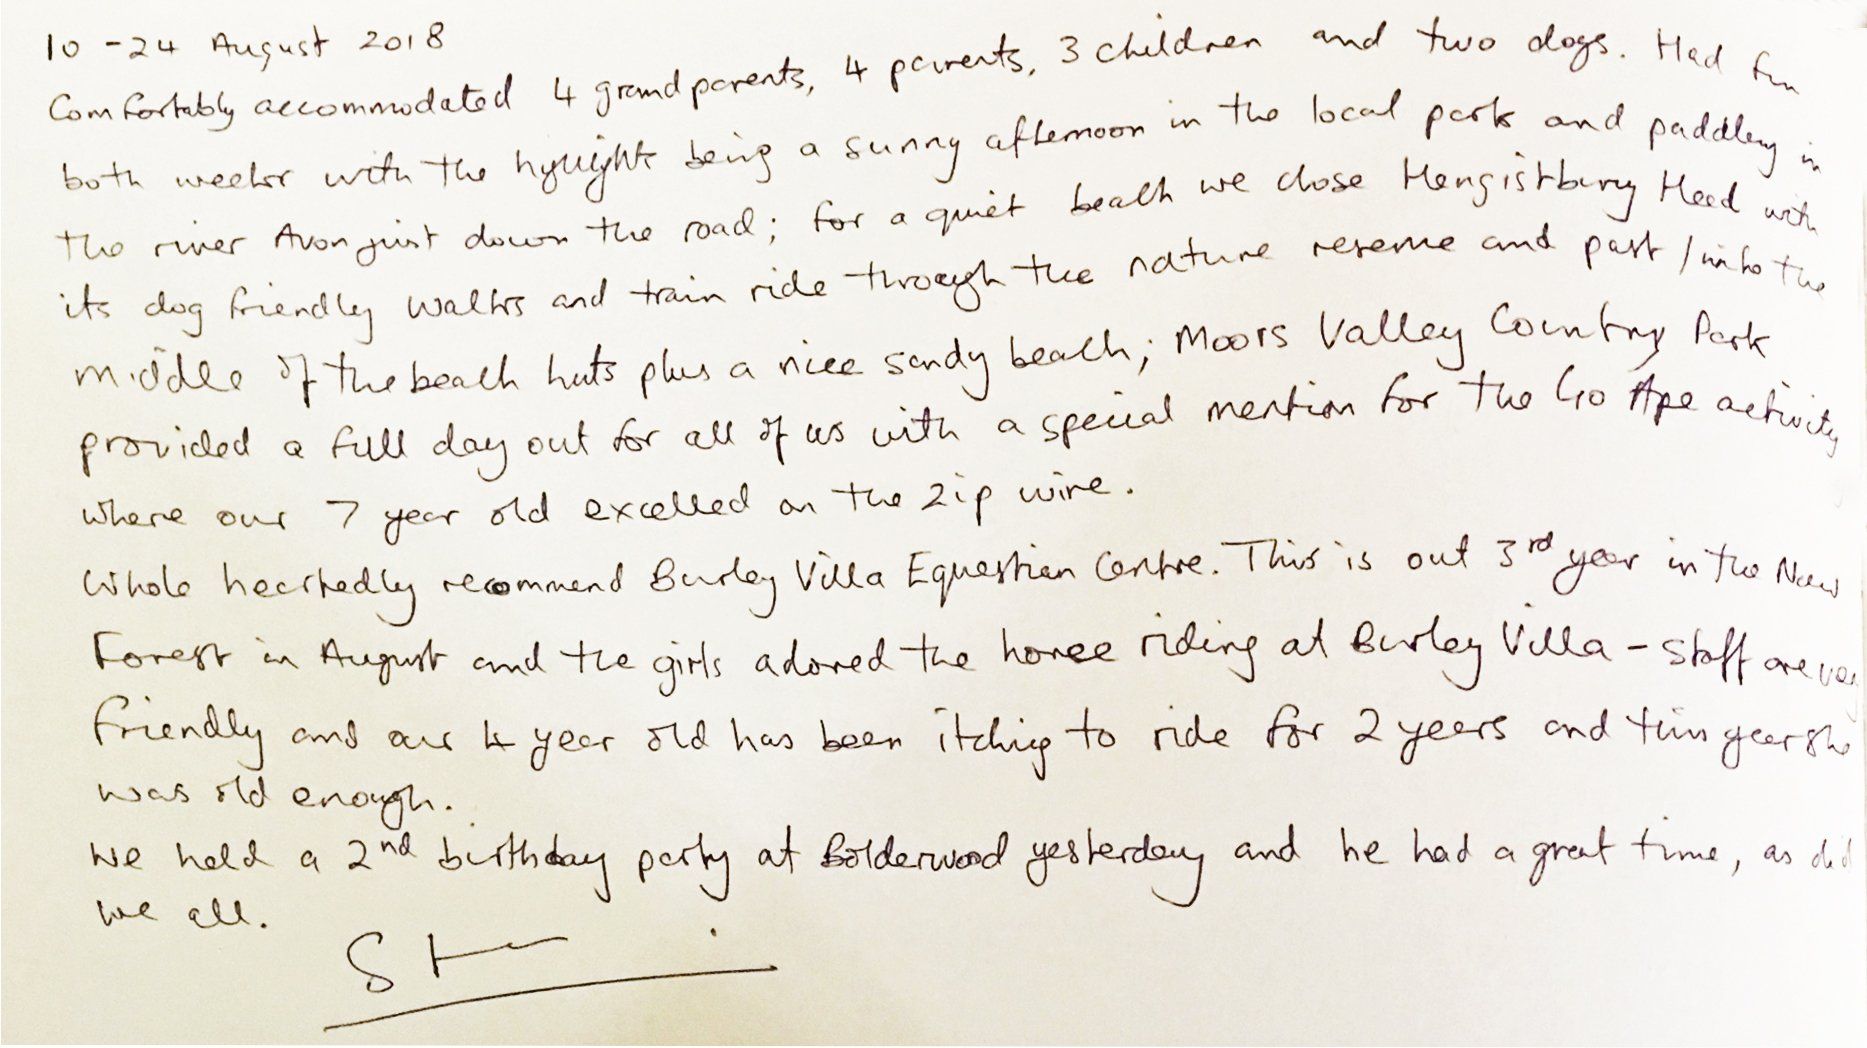 10 - 24 August 2018
Comfortably accommodated 4 grandparents, 4 parents, 3 children and two dogs. Had fun
both weeks with the being a sunny afternoon in the local park and paddling in
the river Avon just down the road; for a quiet beach we chose Hengistbury Head with
its dog friendly walks and train ride through the nature reserve and past / into the
middle of the beach huts plus a nice sandy beach; Moors Valley Country Park
provided a full day out for all of us with a special mention for the Go Ape activity
where our 7 year old excelled on the zip wire.
Whole heartedly recommend Burley Villa Equestrian Centre. This is out 3rd year in the New
Forest in August and the girls adored the horse riding at Burley Villa - staff are very
friendly and our 4 year old has been itching to ride for 2 years and this year she
was old enough.
We held a 2nd birthday party at Bolderwood yesterday and he had a great time, as did
we all.